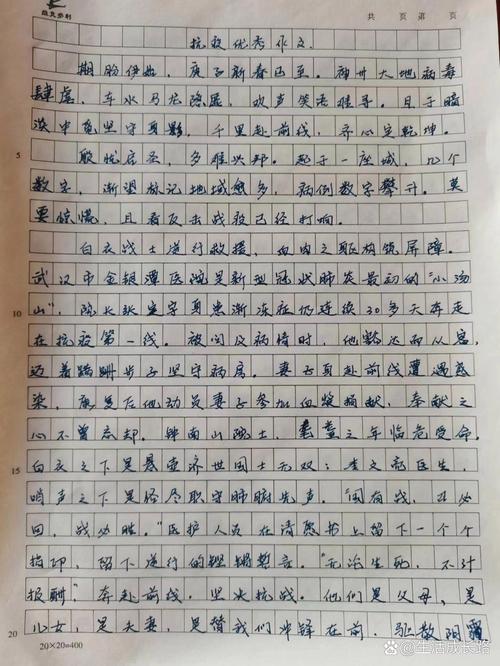 共 页 第 页
抗疫优秀作文.
期盼伊始,庚子新春已至。神州大地病毒
肆虐,车水马龙隐匿,欢声笑语难寻。且于暗
淡中竟坚守身影,千里赴前线,齐心定乾坤。
殷忧启圣,多难兴邦。起于一座城,几个
数字,渐望标记地域愈多,病例数字攀升。莫
要惊慌,且看反击战役已经打响。
白衣战士逆行救援,血肉之躯构筑屏障。
武汉市金银潭医院是新型冠状肺炎最初的“小汤
山”,院长张定宇身患渐冻症仍连续30多天奔走
10
5
在抗疫第一线。被问及病情时,他豁达而从容,
迈着蹒跚步子坚守病房。妻子身赴前线遭遇感
染,康复后他动员妻子参加血浆捐献,奉献之
心不曾忘却。钟南山院士,耄耋之年临危受命,
15
白衣之下是悬壶济世国士无双;李文亮医生,
哨声之下是恪尽职守肺腑先声。“国有战,召必
回,战必胜。”医护人员在请愿书上留下一个个
指印,留下逆行的铿锵誓言。“无论生死,不计
报酬”奔赴前线,坚决抗战。他们是父母,是
20
儿女,是夫妻,是替我们冲锋在前,驱散阴霾
20×20=400
@生活成长路